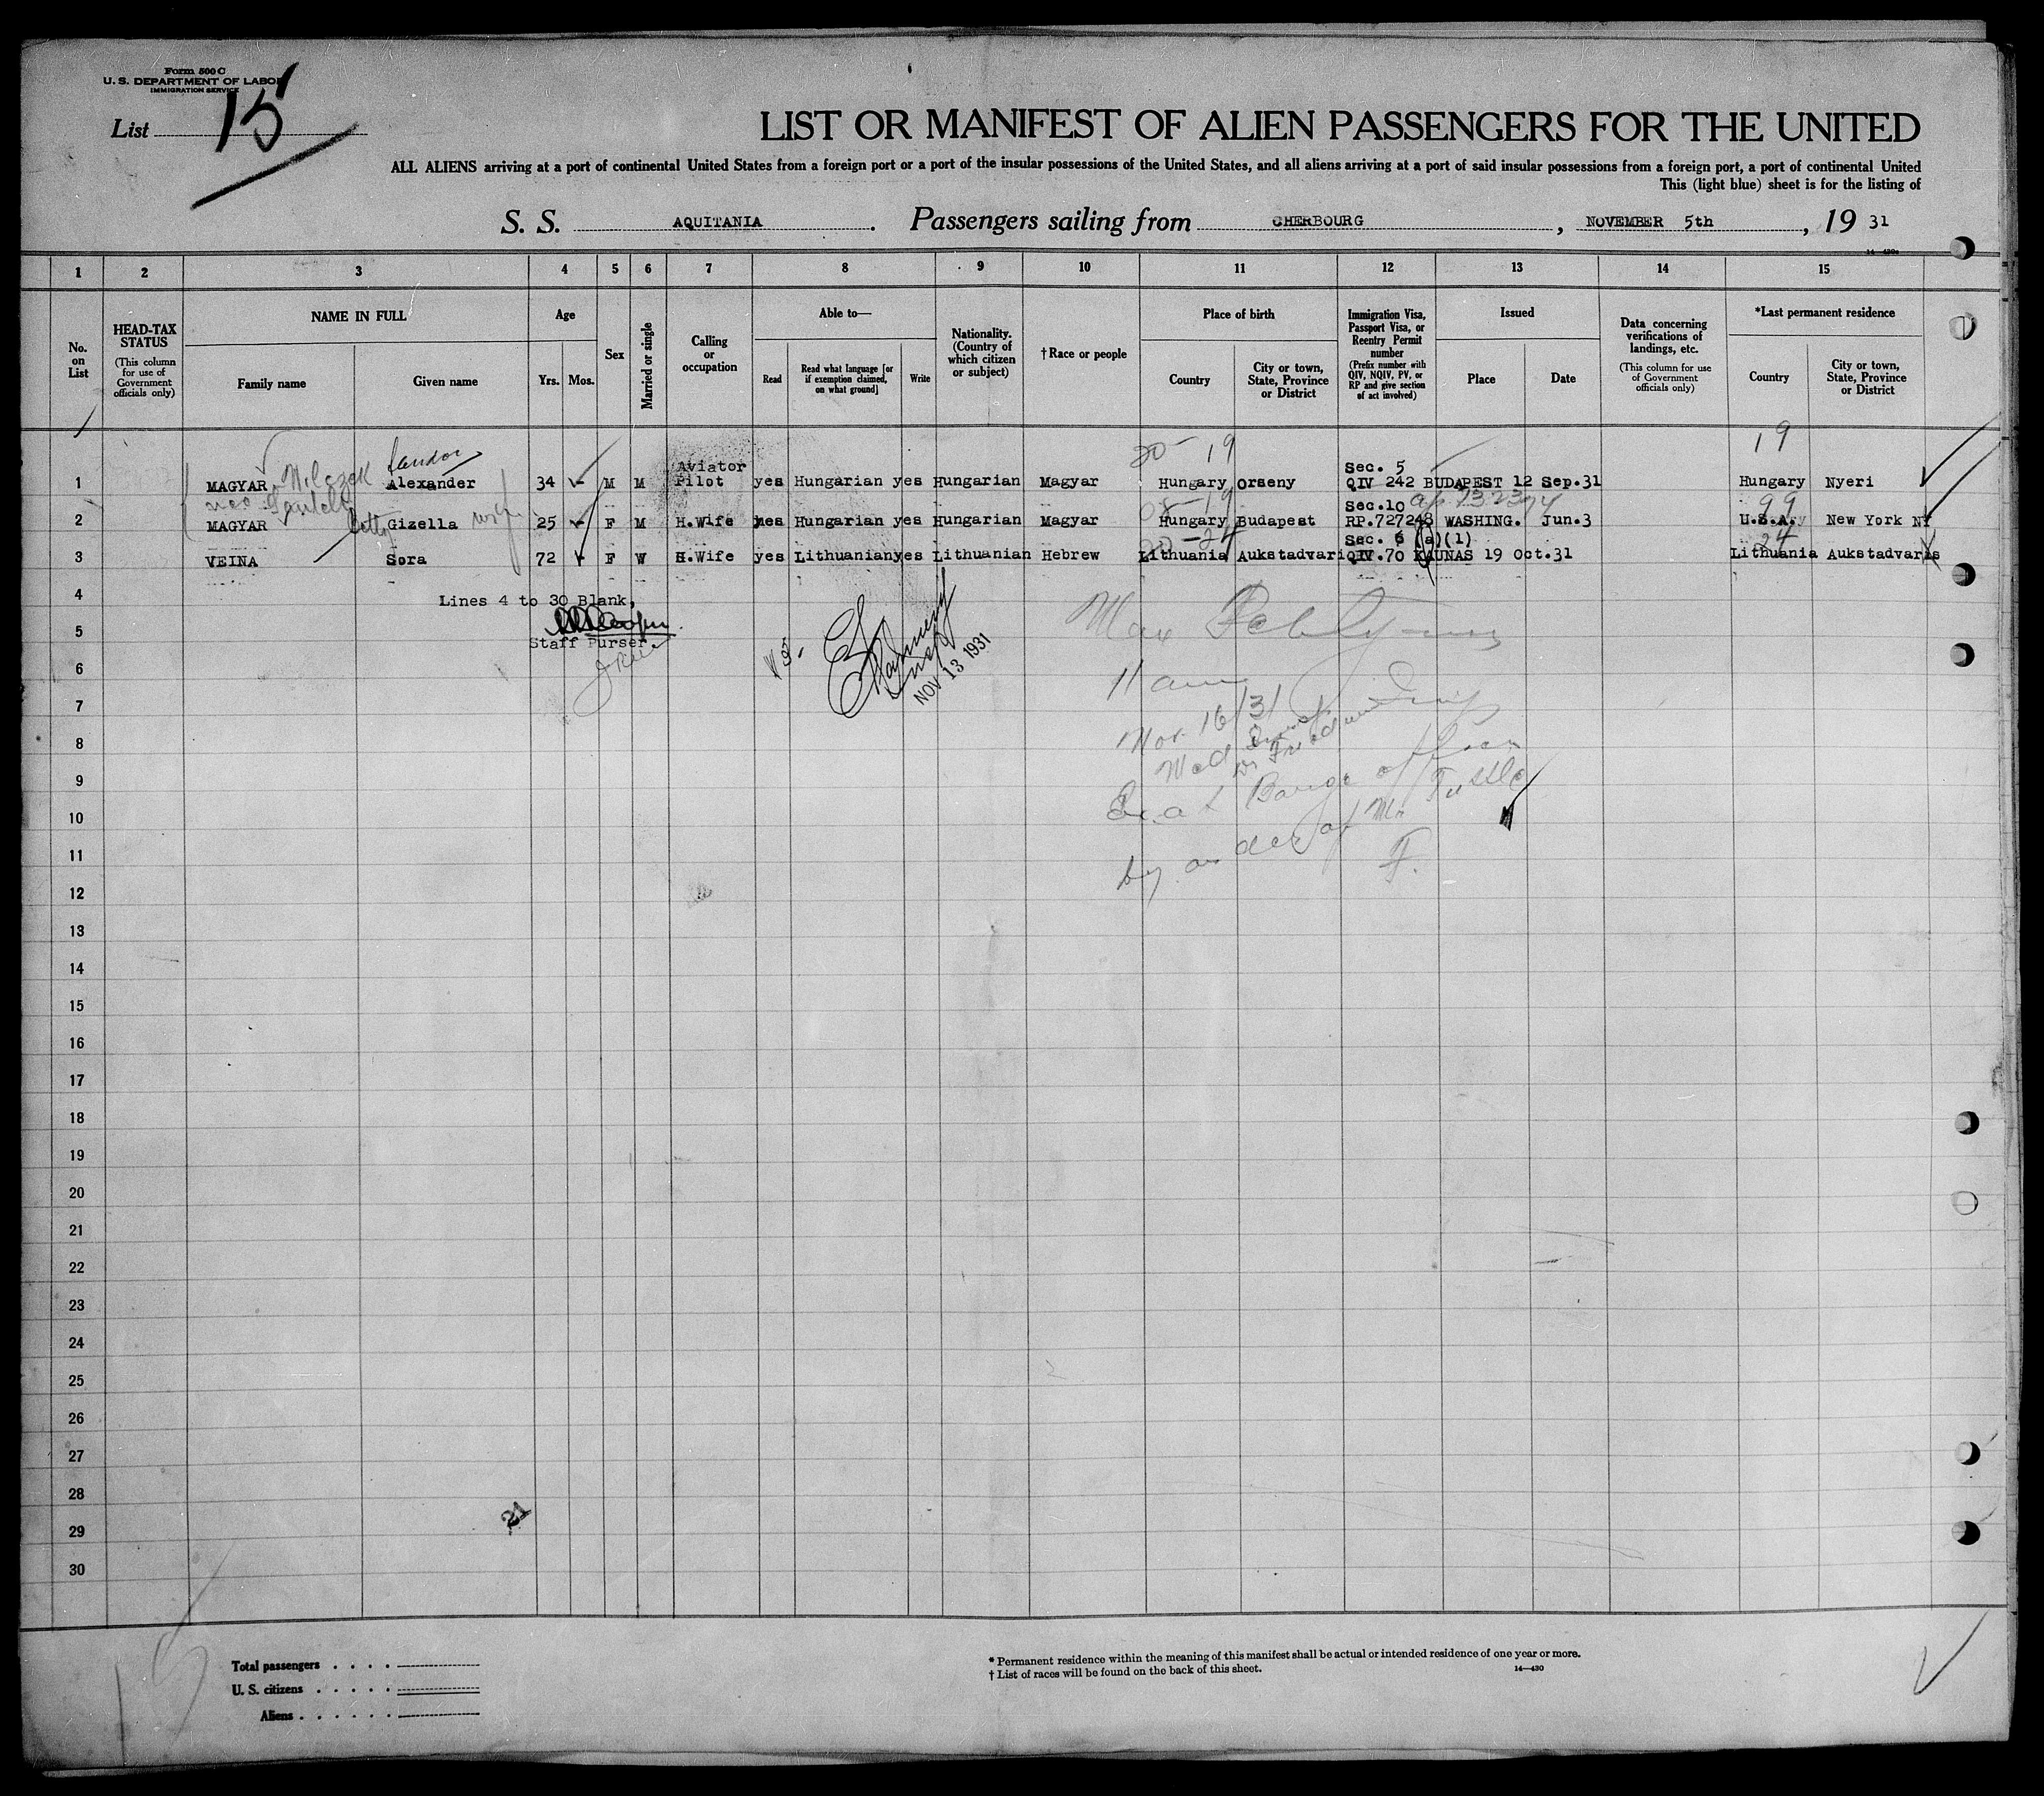 Form 500 C
U. S. DEPARTMENT OF LABOR
IMMIGRATION SERVICE
List 15
LIST OR MANIFEST OF ALIEN PASSENGERS FOR THE UNITED
ALL ALIENS arriving at a port of continental United States from a foreign port or a port of the insular possessions of the United States, and all aliens arriving at a port of said insular possessions from a foreign port, a port of continental United
This (light blue) sheet is for the listing of
S. S. AQUITANIA. Passengers sailing from CHERBOURG, NOVEMBER 5th, 19 31
1 2 3 4 5 6 7 8 9 10 11 12 13 14 15
No. on List
HEAD-TAX STATUS (This column for use of Government officials only)
NAME IN FULL
Family name Given name
Age
Yrs. Mos.
Sex
Married or single
Calling or occupation
Able to—
Read Read what language [or if exemption claimed, on what ground] Write
Nationality. (Country of which citizen or subject)
†Race or people
Place of birth
Country City or town, State, Province or District
Immigration Visa, Passport Visa, or Reentry Permit number (Prefix number with QIV, NQIV, PV, or RP and give section of act involved)
Issued
Place Date
Data concerning verifications of landings, etc. (This column for use of Government officials only)
*Last permanent residence
Country City or town, State, Province or District
Sandor 20 19 19
Aviator Sec. 5
1 MAGYAR Alexander 34 M M Pilot yes Hungarian yes Hungarian Magyar Hungary Orseny QIV 242 BUDAPEST 12 Sep.31 Hungary Nyeri
nee 19 Sec.10 99
2 MAGYAR Gizella wife 25 F M H.Wife yes Hungarian yes Hungarian Magyar Hungary Budapest RP.727248 WASHING. Jun.3 U.S.A. New York NY
20-24 Sec. 6 (a)(1) 24
3 VEINA Sora 72 F W H.Wife yes Lithuanian yes Lithuanian Hebrew Lithuania Aukstadvaris QIV.70 KAUNAS 19 Oct.31 Lithuania Aukstadvaris
4
Lines 4 to 30 Blank,
5
Staff Purser.
6
NOV 13 1931
11 am
7
Nov. 16/31
8
9
10
by order of Mr Tuttle
11
12
13
14
15
16
17
18
19
20
21
22
23
24
25
26
27
28
29
21
30
15
Total passengers . . . .
U. S. citizens . . . . .
Aliens . . . . . .
* Permanent residence within the meaning of this manifest shall be actual or intended residence of one year or more.
† List of races will be found on the back of this sheet.
14—430